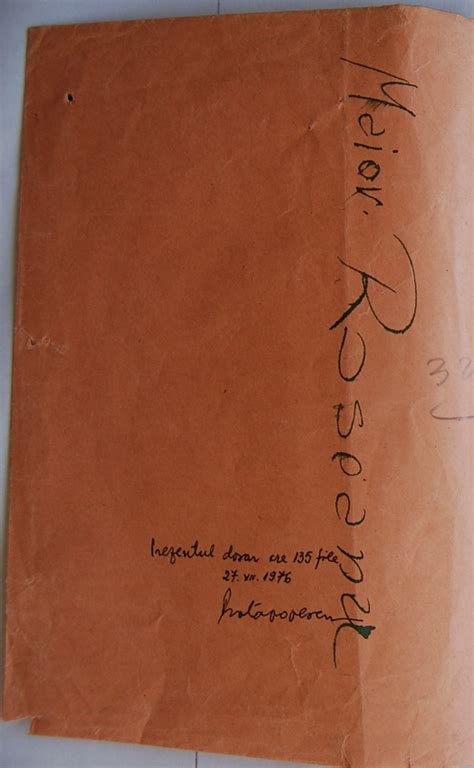 Maior. Roseanu
32
Prezentul dosar are 135 file
27. VII. 1976